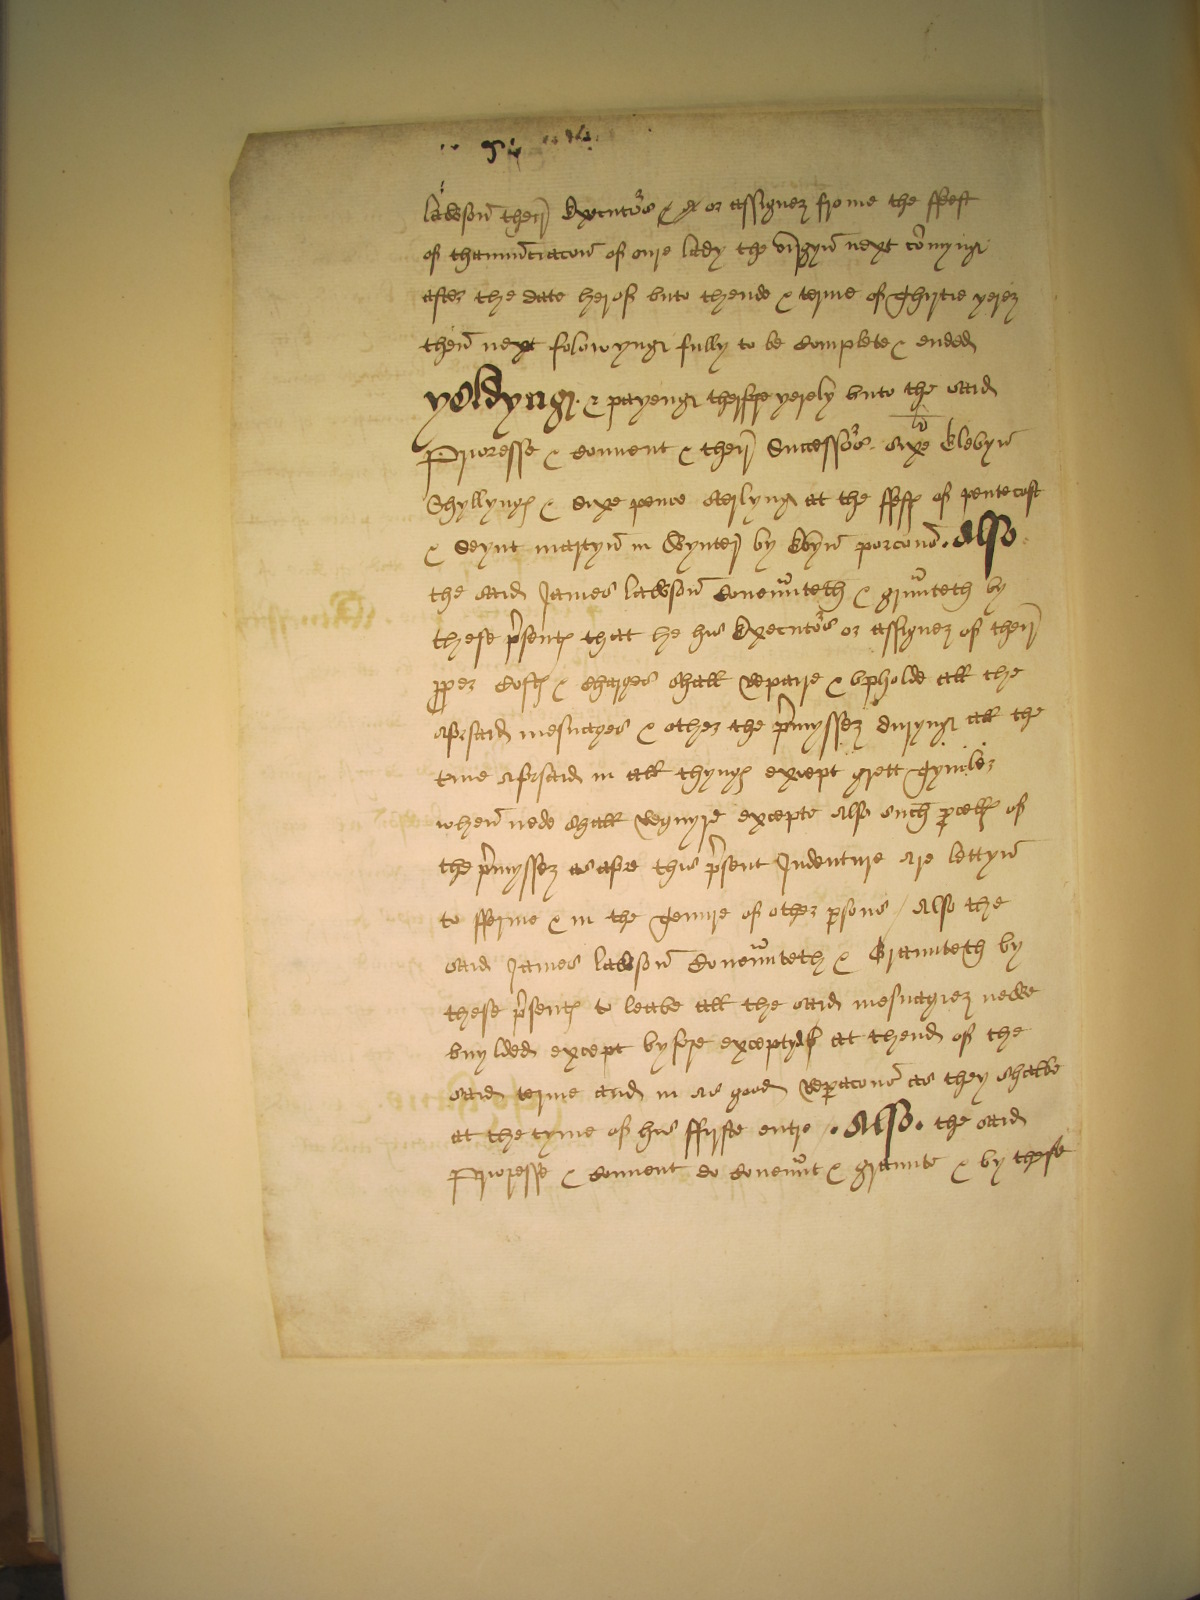 lawson their Executors & or assignez frome the ffest
of thannunciacon of oure lady the virgyn next comyng
after the date herof vnto thende & terme of Thirtie yerez
then next folowyng fully to be complete & ended
yoldyng & payeng therfore yerely vnto the said
Prioresse & Convent & their Successors sixe li Elevyn
Shyllyngs & sixe pence sterlyng at the ffests of pentecost
& Seynt martyn in Wynter by Evyn porcons. Also
the said James lawson Covenunteth & grunteth by
these presents that he his Executors or assignez of their
propez Costs & Charges shall repaire & vpholde all the
aforsaid mesuages & other the premyssez duryng all the
tyme aforsaid in all thyngs except grett Tymber
when nede shall requyre excepte also such percells of
the premyssez as afore this present Indenture are lettyn
to fferme & in the Tenure of other persons / Also the
said James lawson Covenunteth & Graunteth by
these presents to leave all the said mesuagiez newe
buylded except byfore exceptyd at thend of the
said terme and in as good reparacons as they shalbe
at the tyme of his ffirste entre /. Also. the said
Prioresse & Convent do Covenunt & graunte & by these